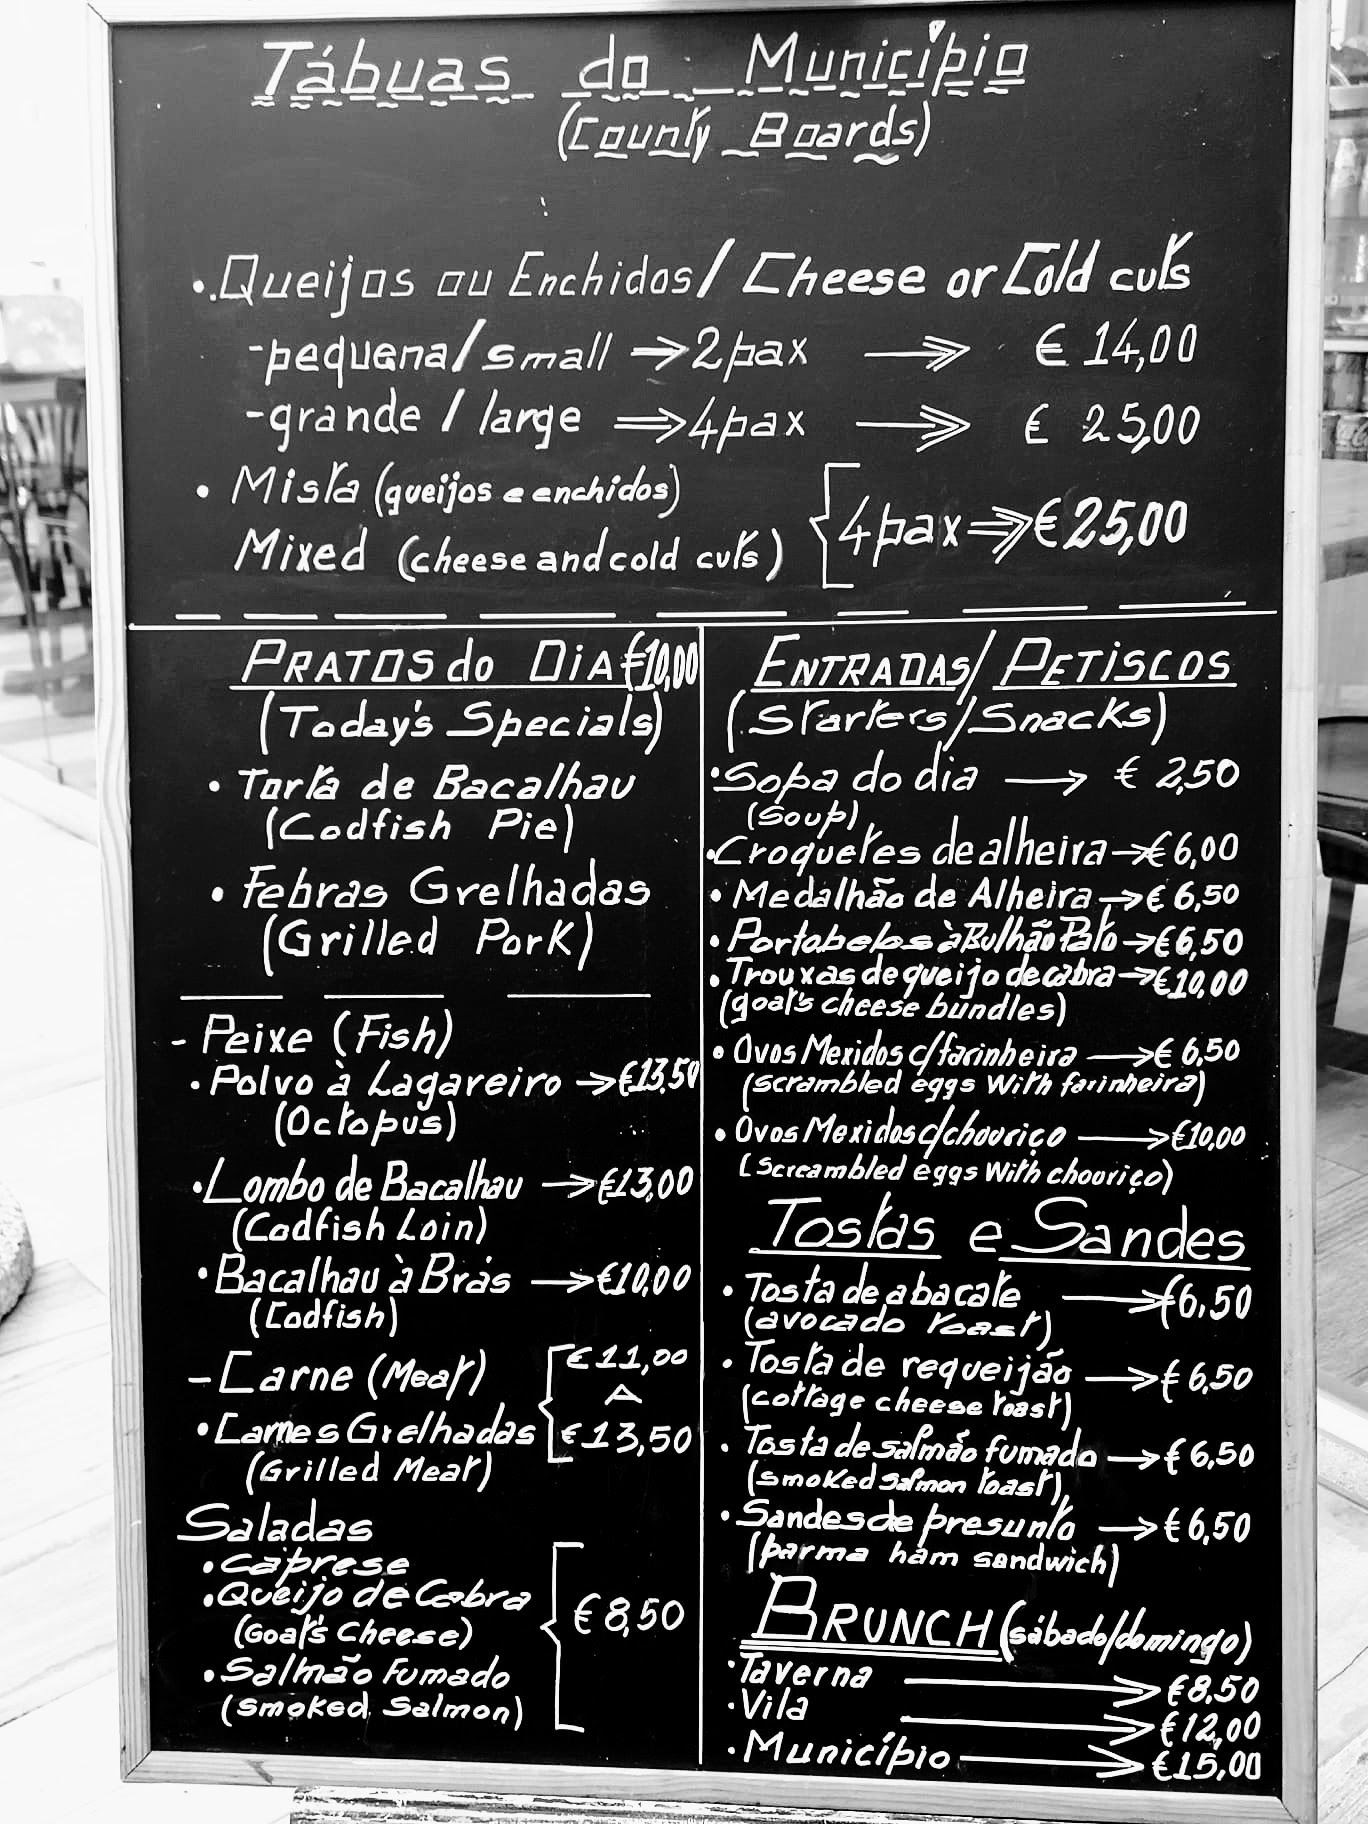 Tábuas do Município
(County Boards)
• Queijos ou Enchidos / Cheese or Cold cuts
- pequena / small ⇒ 2 pax ⇒ € 14,00
- grande / large ⇒ 4 pax ⇒ € 25,00
• Mista (queijos e enchidos)
Mixed (cheese and cold cuts)
4 pax ⇒ € 25,00
PRATOS do DiA €10,00
(Today's Specials)
• Torta de Bacalhau
(Codfish Pie)
• Febras Grelhadas
(Grilled Pork)
- Peixe (Fish)
• Polvo à Lagareiro → €13,50
(Octopus)
• Lombo de Bacalhau → €13,00
(Codfish Loin)
• Bacalhau à Brás → €10,00
(Codfish)
- Carne (Meat)
• Carnes Grelhadas
(Grilled Meat)
€ 11,00
A
€ 13,50
Saladas
• Caprese
• Queijo de Cabra
(Goat's Cheese)
• Salmão Fumado
(Smoked Salmon)
€ 8,50
ENTRADAS / PETiSCOS
(Starters/Snacks)
• Sopa do dia → € 2,50
(Soup)
• Croquetes de alheira → € 6,00
• Medalhão de Alheira → € 6,50
• Portobelos à Bulhão Pato → € 6,50
• Trouxas de queijo de cabra → € 10,00
(goat's cheese bundles)
• Ovos Mexidos c/farinheira → € 6,50
(scrambled eggs with farinheira)
• Ovos Mexidos c/chouriço → €10,00
(Screambled eggs with chouriço)
Tostas e Sandes
• Tosta de abacate → €6,50
(avocado toast)
• Tosta de requeijão → € 6,50
(cottage cheese toast)
• Tosta de salmão fumado → € 6,50
(smoked salmon toast)
• Sandes de presunto → € 6,50
(parma ham sandwich)
BRUNCH (sábado/domingo)
• Taverna → €8,50
• Vila → €12,00
• Município → €15,00